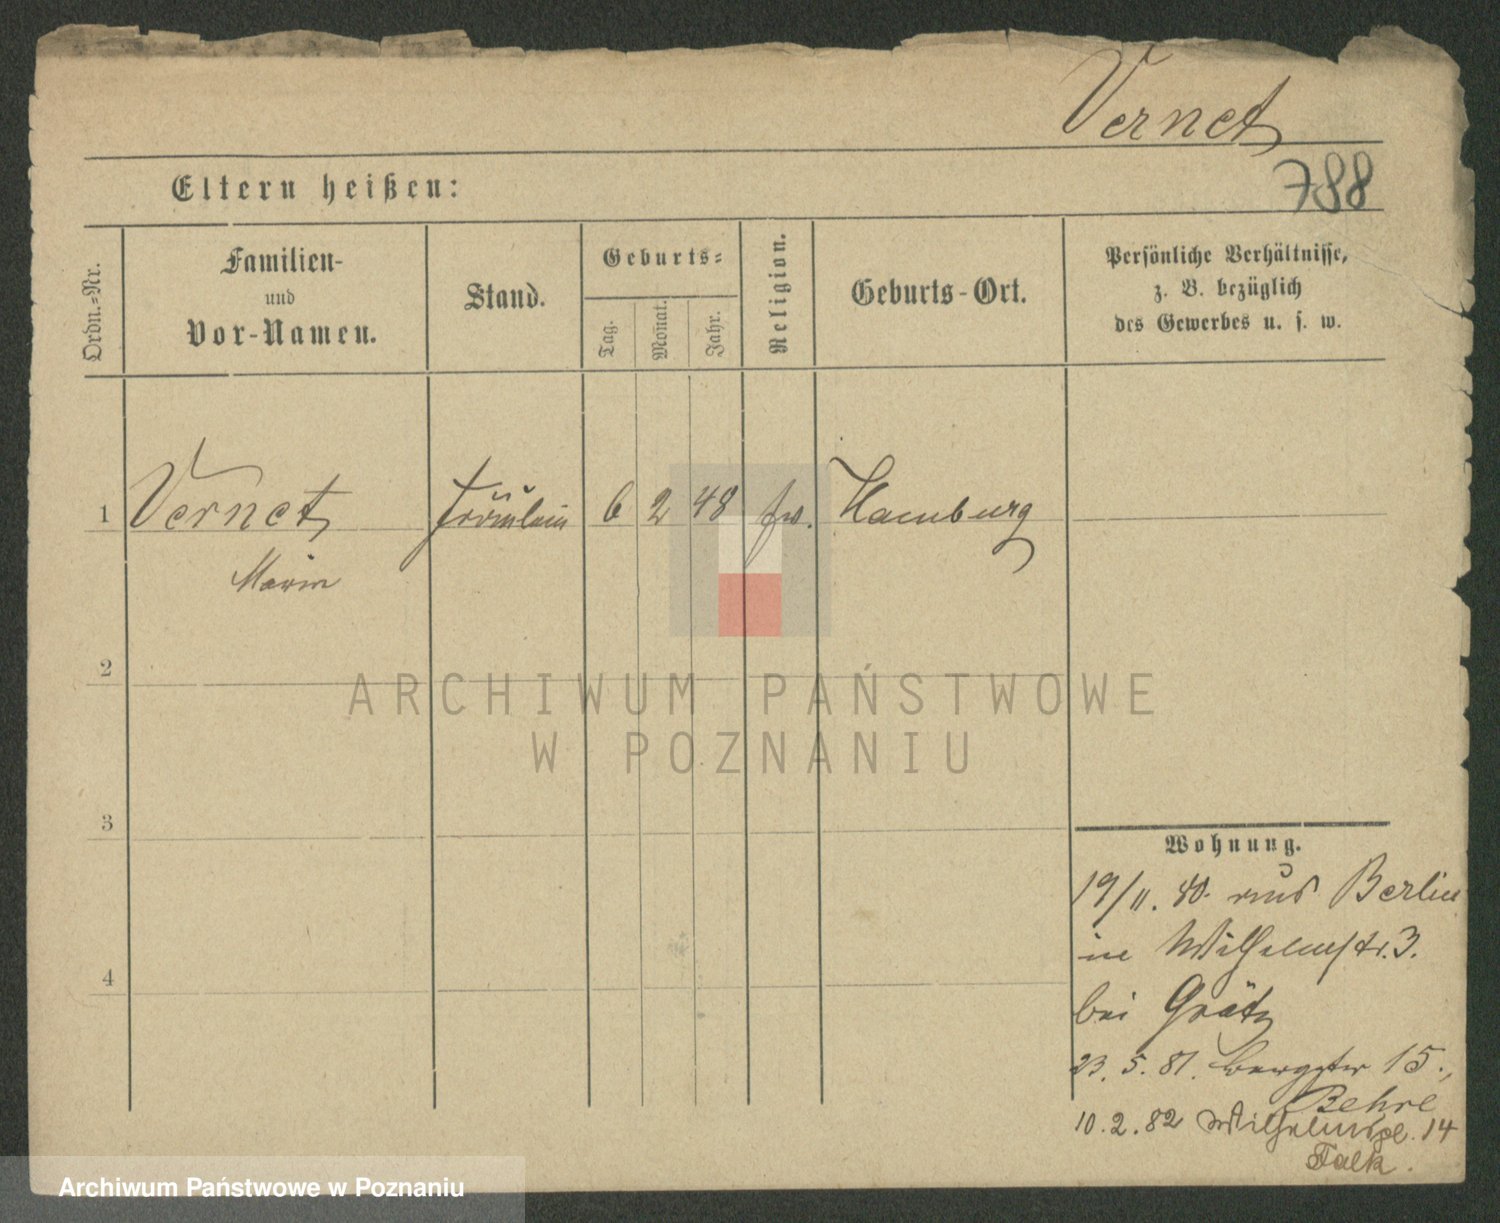 Vernet
788
Eltern heißen:
Ordn.-Nr.
Familien-
und
Vor-Namen.
Stand.
Geburts-
Tag.
Monat.
Jahr.
Religion.
Geburts-Ort.
Persönliche Verhältnisse,
z. B. bezüglich
des Gewerbes u. s. w.
1 Vernet Fräulein 6 2 48 Hamburg
Marie
2
ARCHIWUM PAŃSTWOWE
W POZNANIU
3
Wohnung.
19/11. 80. aus Berlin
in Wilhelmstr. 3.
4
bei Grätz
23. 5. 81. Bergstr 15.,
Behre
10. 2. 82 Wilhelmspl. 14
Falk.
Archiwum Państwowe w Poznaniu